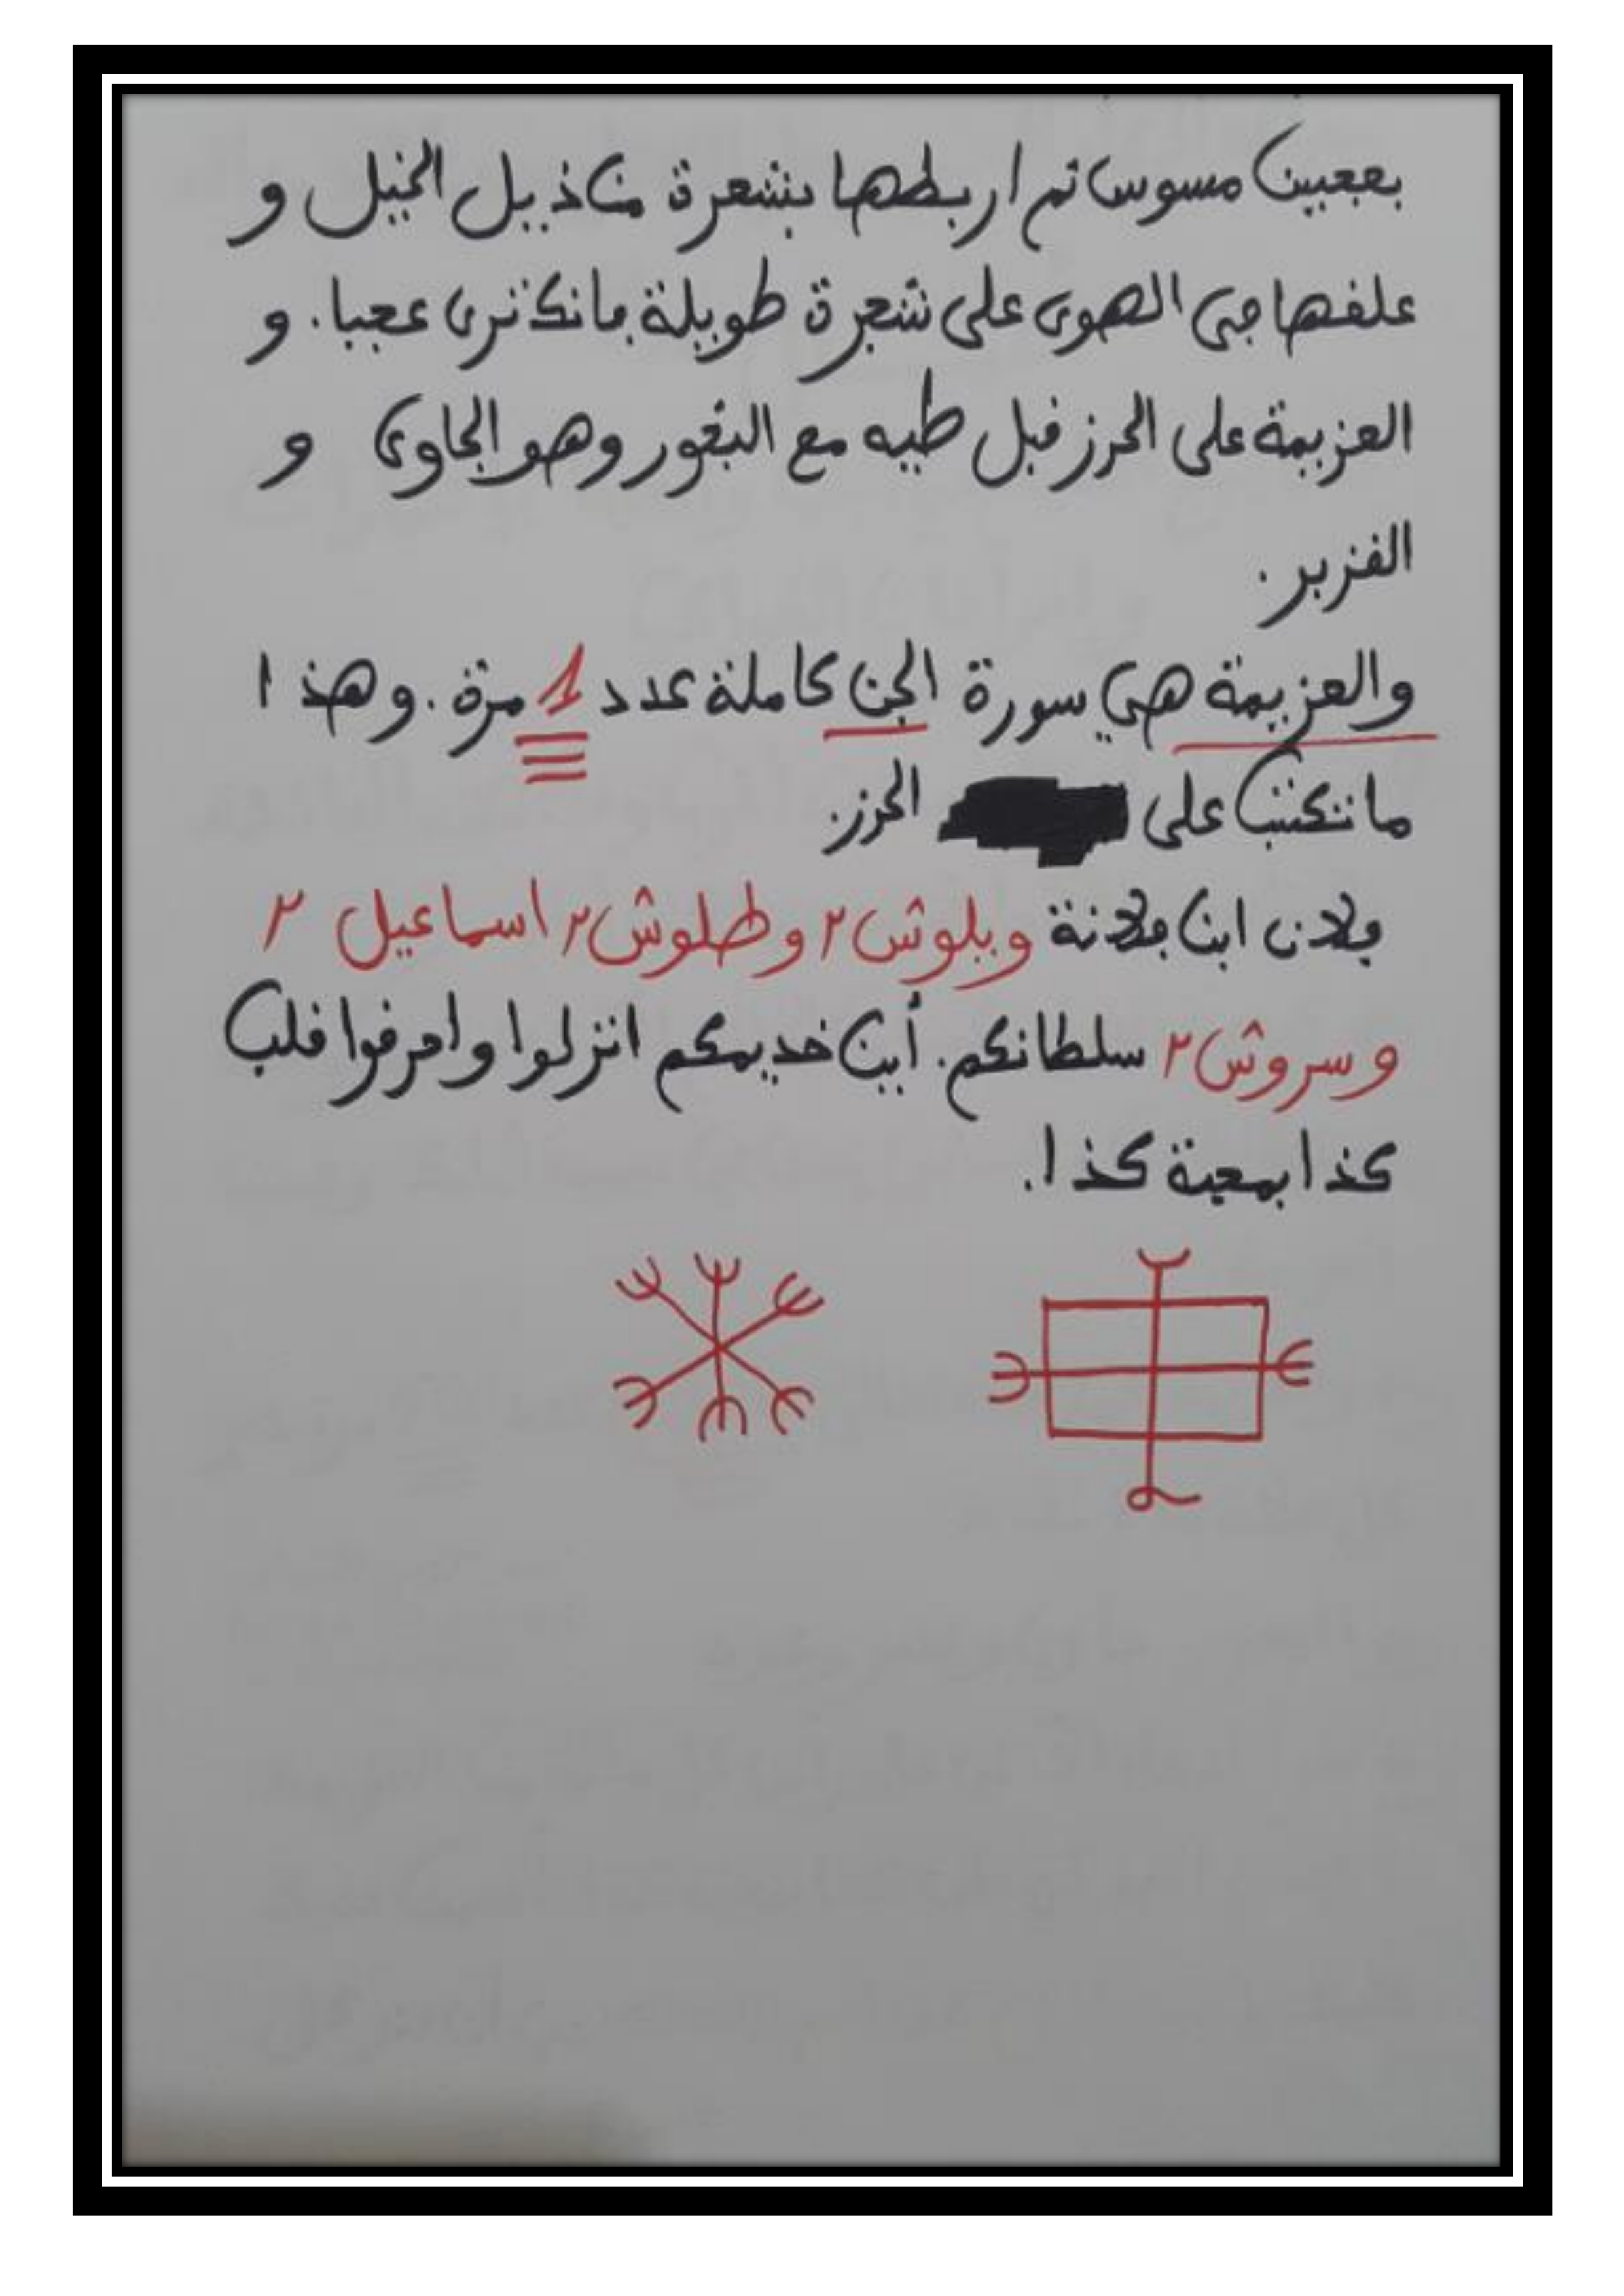 بعجين مسوس ثم اربطها بشعرة من ذيل الخيل و
علقها في الهوى على شجرة طويلة فانك ترى عجبا. و
العزيمة على الحرز قبل طيه مع البخور وهو الجاوى و
القزبر.
والعزيمة هي سورة الجن كاملة عدد 1 مرة. وهذا
ما تكتب على الحرز.
فلان ابن فلانة وبلوش ٢ وطلوش ٢ اسماعيل ٢
وسروش ٢ سلطانكم. أين خديمكم انزلوا واحرقوا قلب
كذا بمحبة كذا.